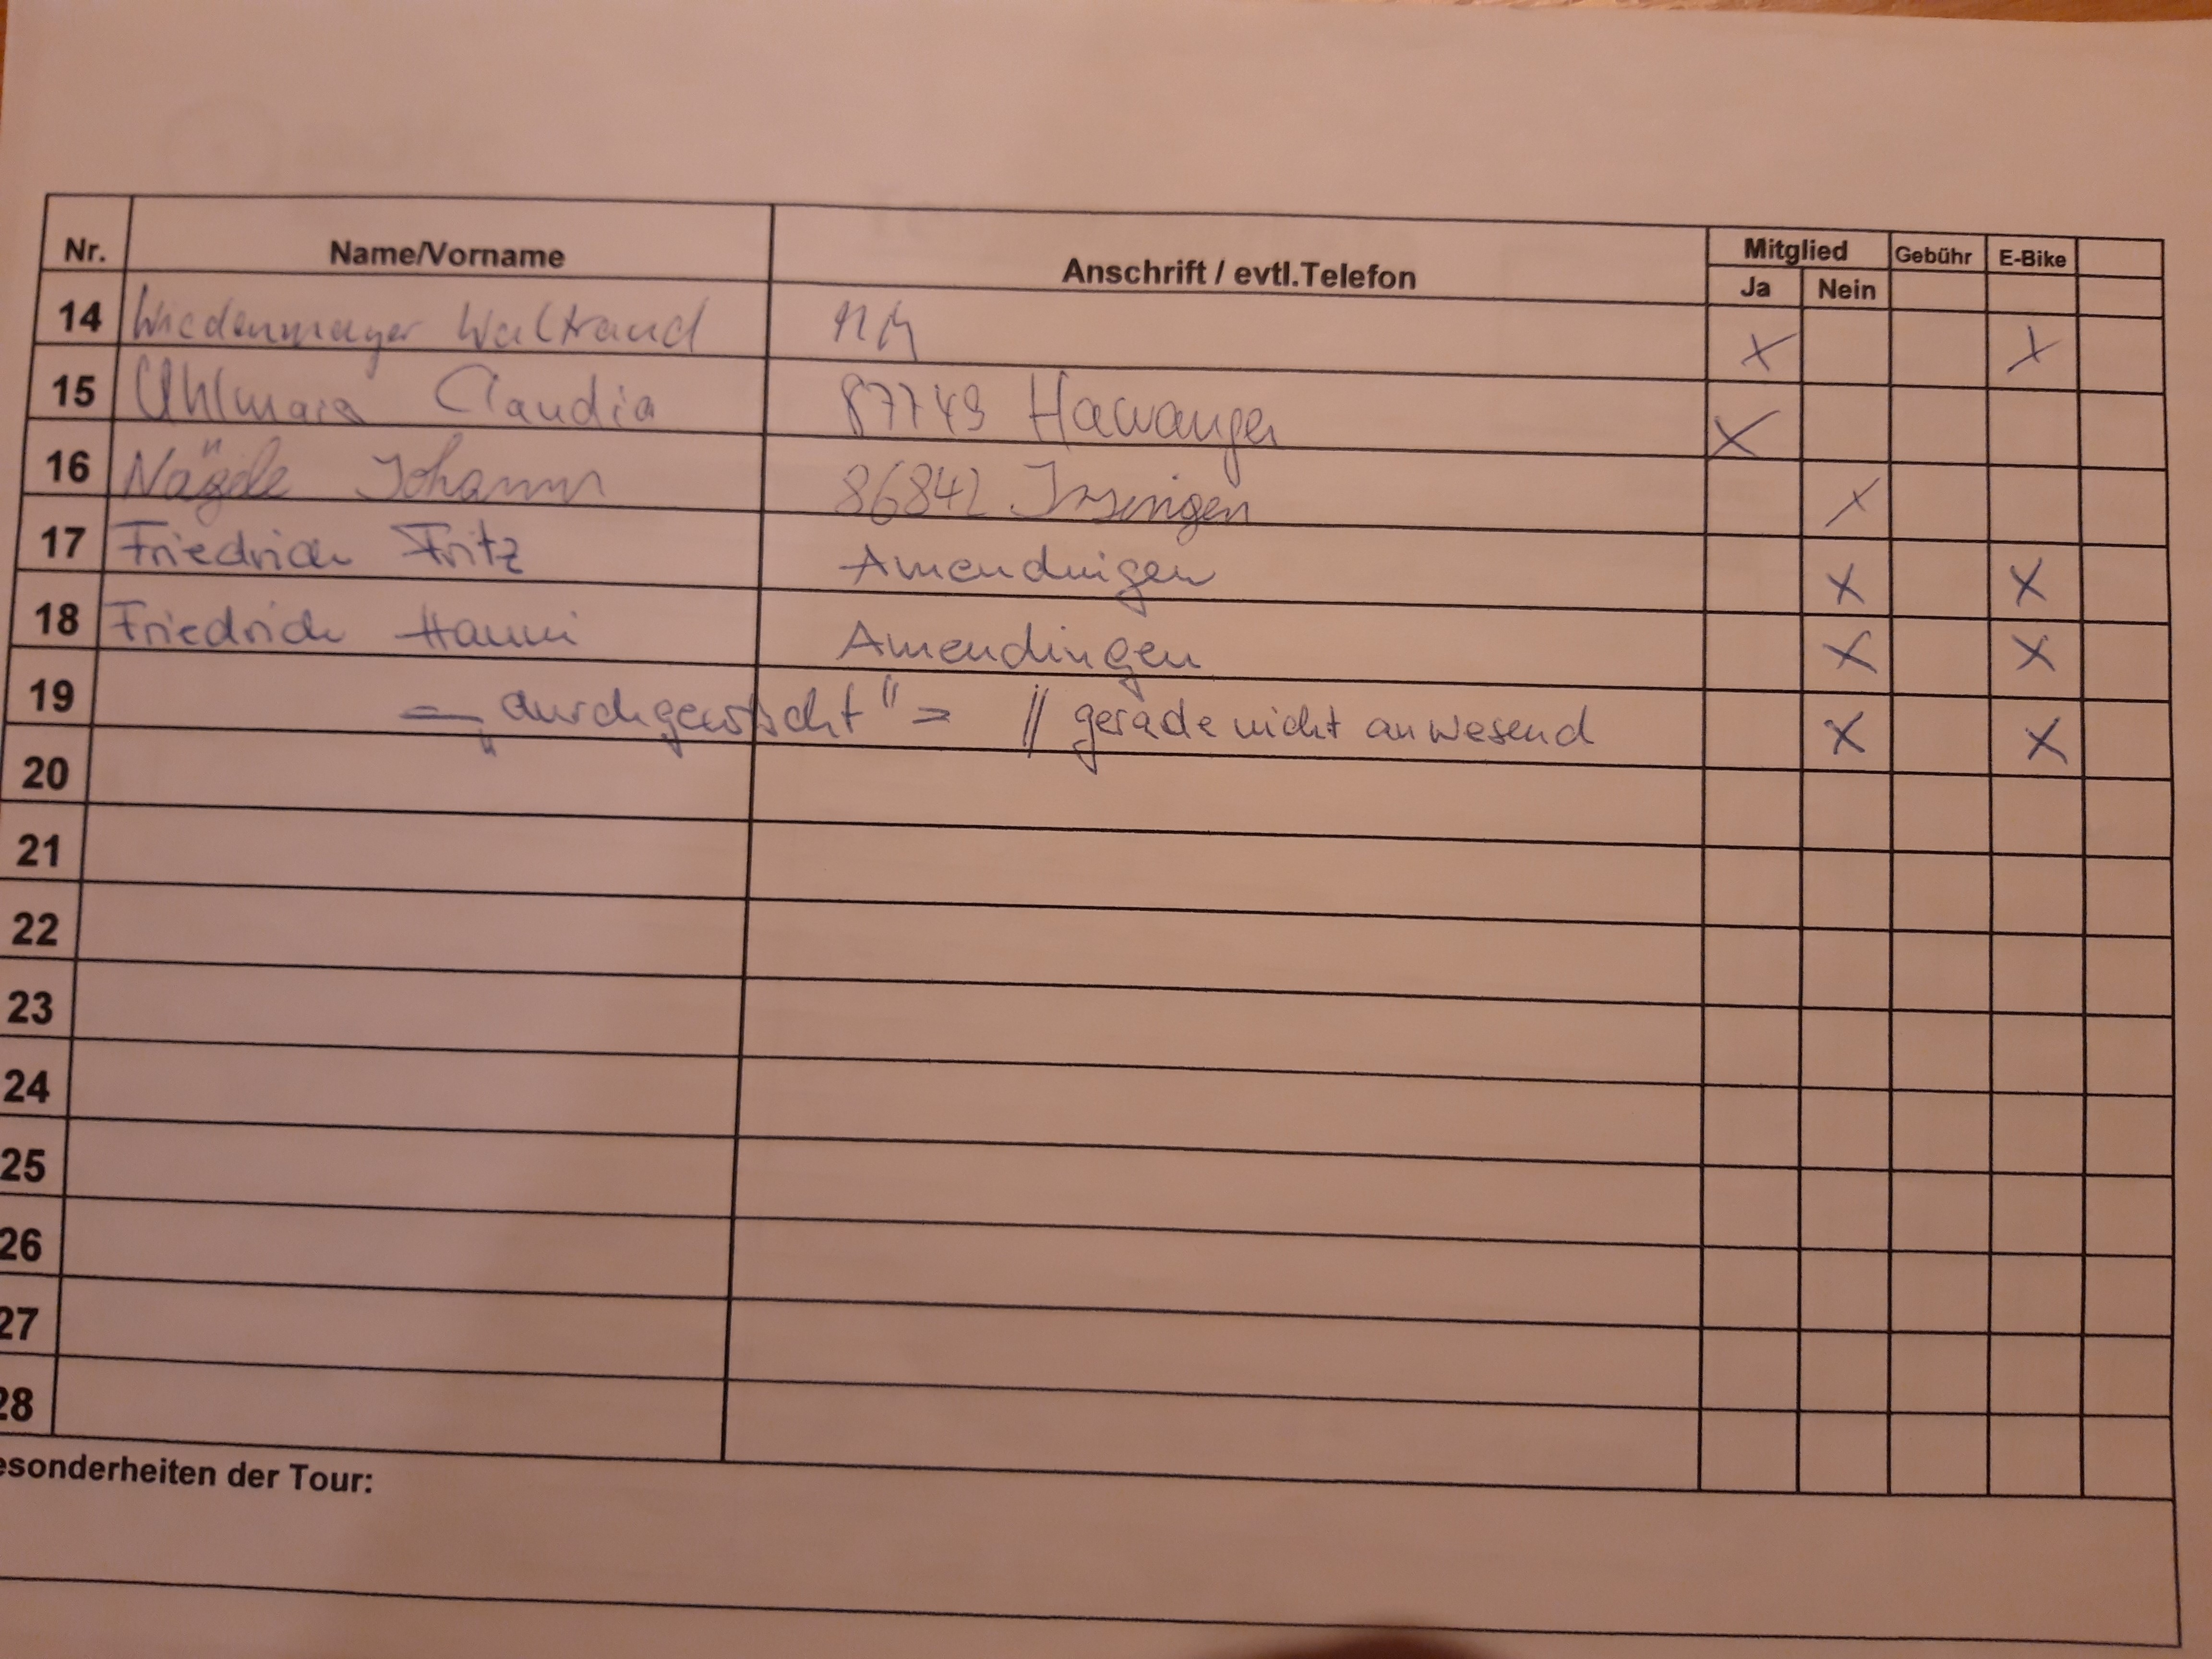 Nr. Name/Vorname Anschrift / evtl.Telefon Mitglied Gebühr E-Bike
Ja Nein
14 Wiedenmayer Waltraud MM X X
15 Uhlmann Claudia 87749 Hawangen X
16 Nägele Johann 86842 Irsingen X
17 Friedrich Fritz Amendingen X X
18 Friedrich Hanni Amendingen X X
19 = „durchgewischt" = // gerade nicht anwesend X X
20
21
22
23
24
25
26
27
28
esonderheiten der Tour: